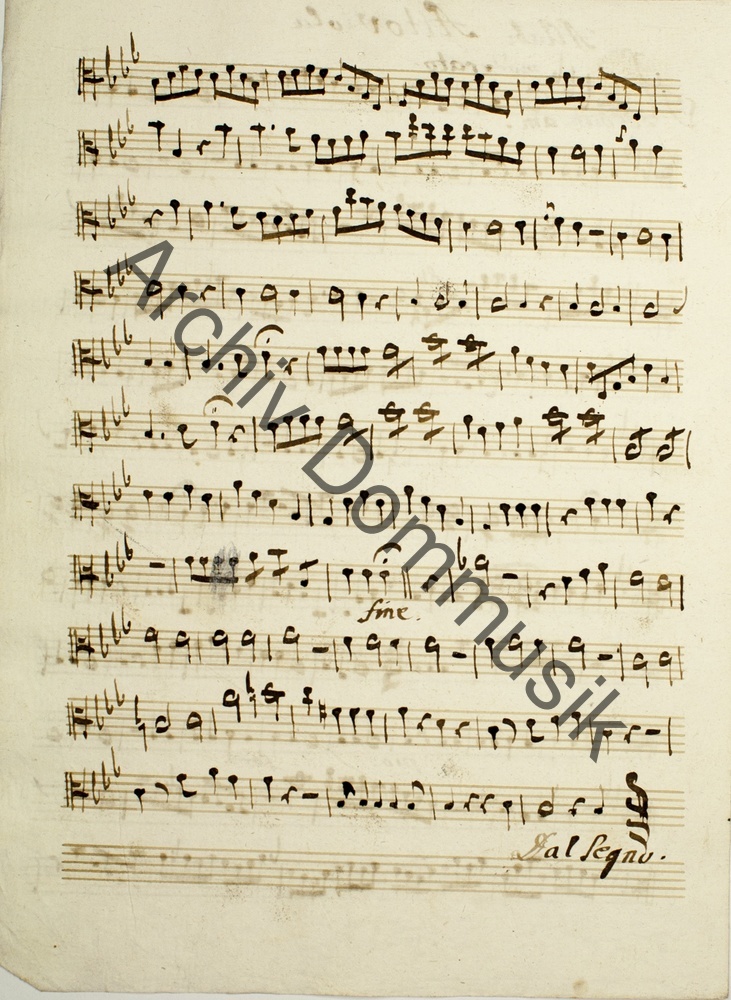 Archiv Dommusik
fine.
Dal Segno.